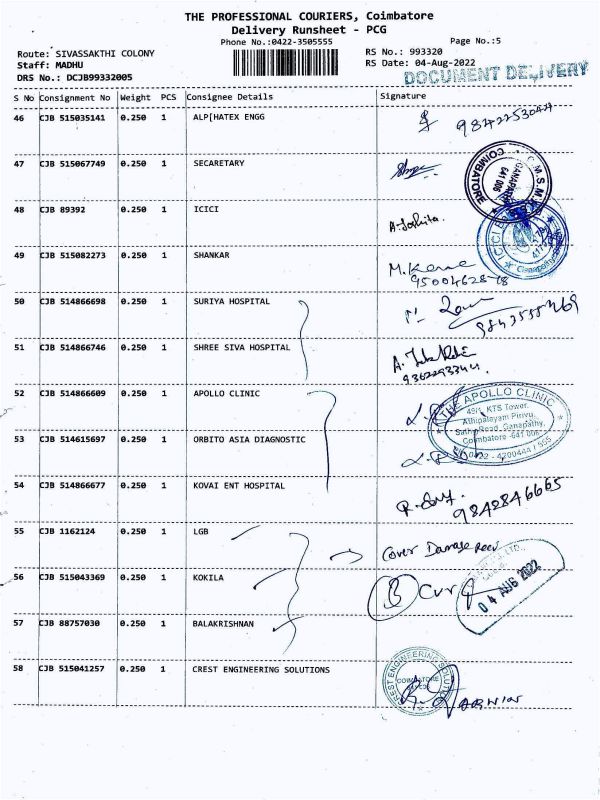 THE PROFESSIONAL COURIERS, Coimbatore
Delivery Runsheet - PCG
Phone No.:0422-3505555 Page No.:5
Route: SIVASSAKTHI COLONY RS No.: 993320
Staff: MADHU RS Date: 04-Aug-2022
DRS No.: DCJB99332005 DOCUMENT DELIVERY
S No Consignment No Weight PCS Consignee Details Signature
46 CJB 515035141 0.250 1 ALP[HATEX ENGG 9842253044
47 CJB 515067749 0.250 1 SECARETARY
COIMBATORE 641 006
48 CJB 89392 0.250 1 ICICI
49 CJB 515082273 0.250 1 SHANKAR
50 CJB 514866698 0.250 1 SURIYA HOSPITAL
51 CJB 514866746 0.250 1 SHREE SIVA HOSPITAL
52 CJB 514866609 0.250 1 APOLLO CLINIC
THE APOLLO CLINIC
49/1, KTS Tower,
Athipalayam Pirivu,
Sathy Road, Ganapathy,
Coimbatore -641 006
53 CJB 514615697 0.250 1 ORBITO ASIA DIAGNOSTIC
54 CJB 514866677 0.250 1 KOVAI ENT HOSPITAL 9842846665
55 CJB 1162124 0.250 1 LGB Cover Damage
56 CJB 515043369 0.250 1 KOKILA
04 AUG 2022
57 CJB 88757030 0.250 1 BALAKRISHNAN
58 CJB 515041257 0.250 1 CREST ENGINEERING SOLUTIONS
CREST ENGINEERING SOLUTIONS
COIMBATORE